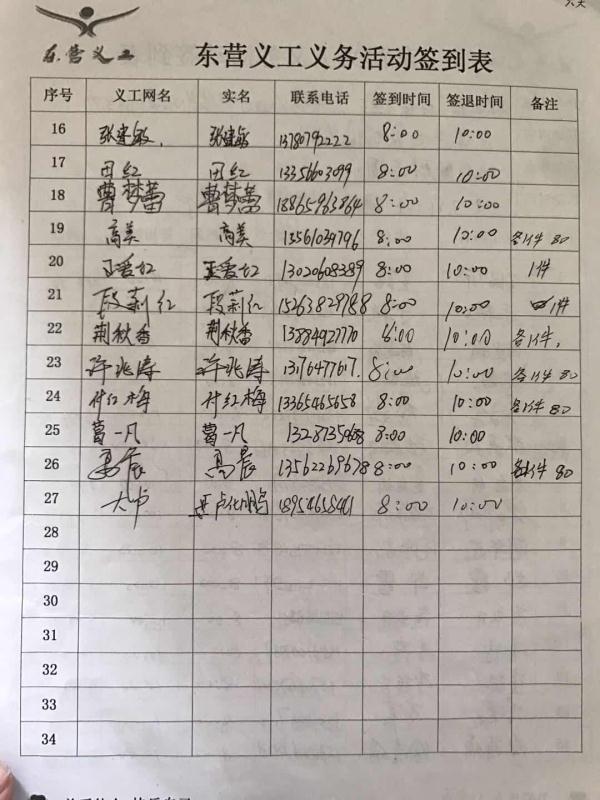 东营义工
东营义工义务活动签到表
序号 义工网名 实名 联系电话 签到时间 签退时间 备注
16 张建敏 张建敏 13780792222 8:00 10:00
17 田红 田红 13356603099 8:00 10:00
18 曹梦蕾 曹梦蕾 18865963864 8:00 10:00
19 高美 高美 13561039796 8:00 10:00 各1件 80
20 王爱红 王爱红 13020608389 8:00 10:00 1件
21 段莉红 段莉红 15263829788 8:00 10:00 1件
22 荆秋香 荆秋香 13884927770 8:00 10:00 各1件
23 许兆涛 许兆涛 13176477617 8:00 10:00 各1件 80
24 付红梅 付红梅 13365465658 8:00 10:00 各1件 80
25 葛一凡 葛一凡 8:00 10:00
26 高晨 13562269678 8:00 10:00 各1件 80
27 大卢 卢化鹏 18954658461 8:00 10:00
28
29
30
31
32
33
34